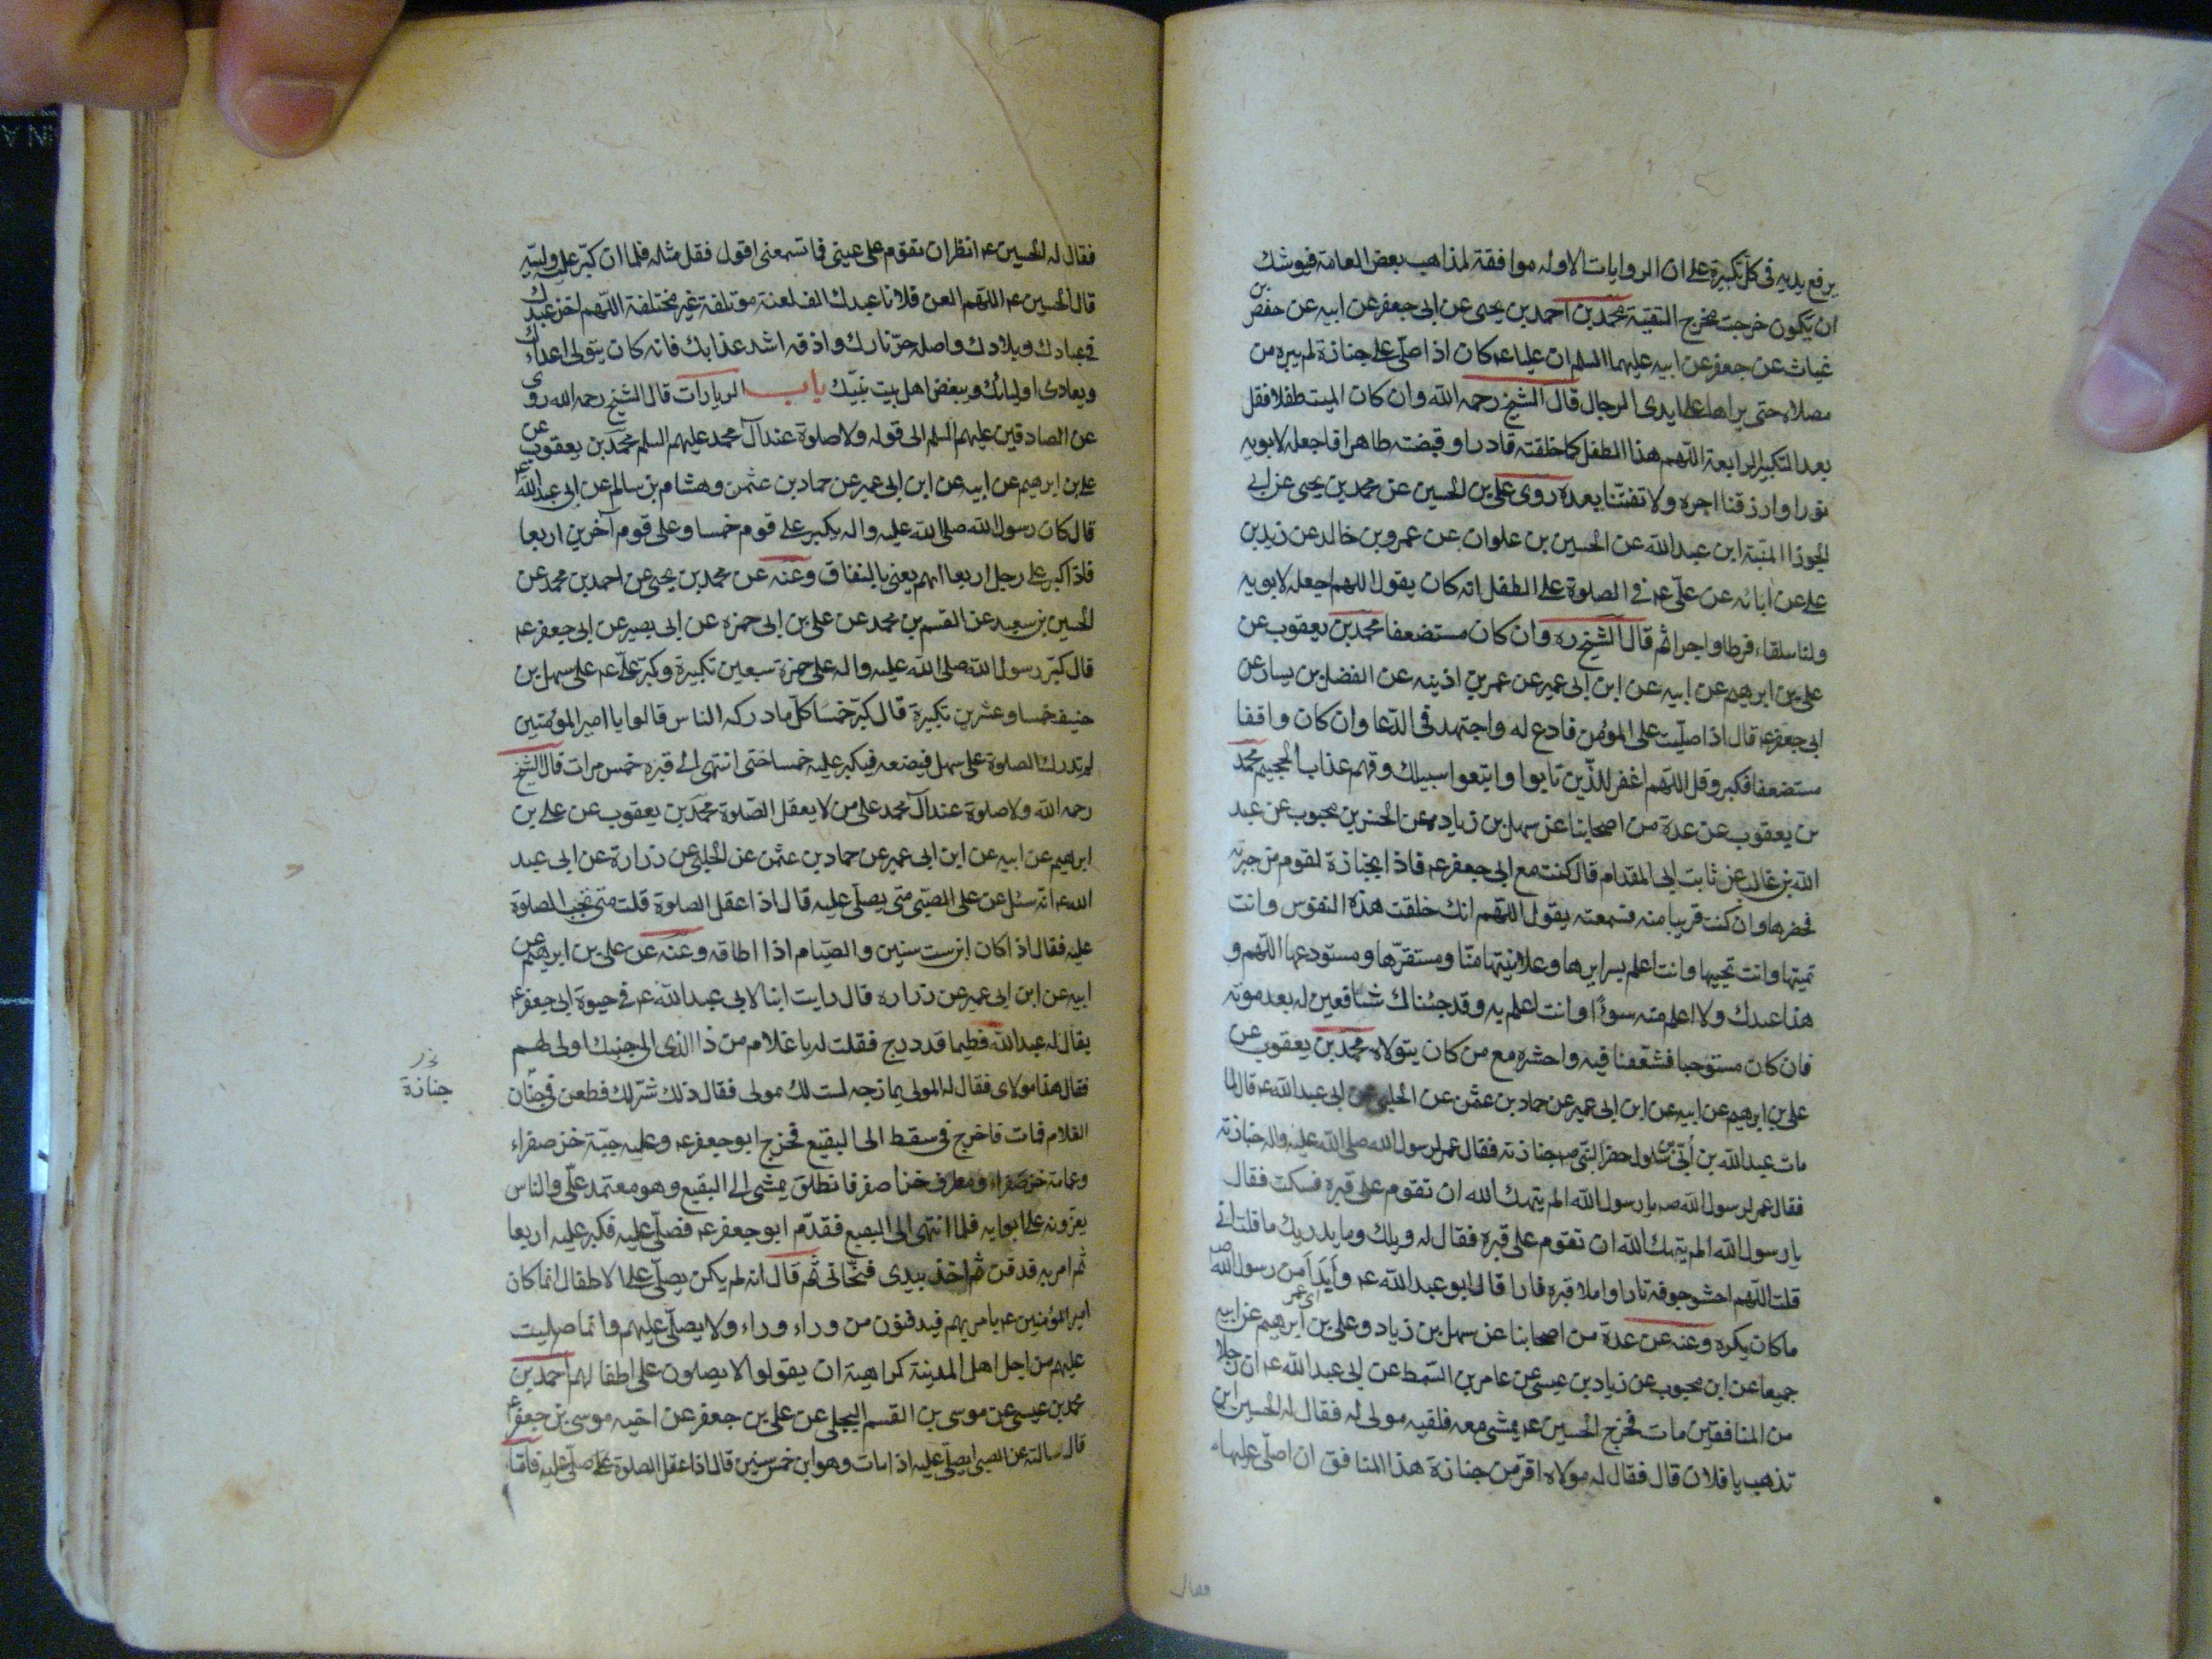 يرفع يديه في كل تكبيرة على ان الروايات الاوله موافقة لمذاهب بعض العامة فيوشك
ان يكون خرجت مخرج التقية محمد بن احمد بن يحيى عن ابى جعفر عن ابيه عن حفص بن
غياث عن جعفر عن ابيه عليهما السلم ان عليا عم كان اذا صلى على جنازة لم يبرح من
مصلاه حتى يراها على ايدى الرجال قال الشيخ رحمه الله وان كان الميت طفلا فقل
بعد التكبير الرابعة اللهم هذا الطفل كما خلقته قادرا وقبضته طاهرا فاجعله لابويه
نورا وارزقنا اجره ولا تفتنا بعده روى على بن الحسين عن محمد بن يحيى عن ابى
الجوزا المنبة ابن عبد الله عن الحسين بن علوان عن عمرو بن خالد عن زيد بن
على عن ابائه عن على عم في الصلوة على الطفل انه كان يقول اللهم اجعله لابويه
ولنا سلفا وفرطا واجرا ثم قال الشيخ ره وان كان مستضعفا محمد بن يعقوب عن
على بن ابرهيم عن ابيه عن ابن ابى عمير عن عمر بن اذينه عن الفضل بن يسار عن
ابى جعفر عم قال اذا صليت على المؤمن فادع له واجتهد في الدعا وان كان واقفا
مستضعفا فكبر وقل اللهم اغفر للذين تابوا واتبعوا سبيلك وقهم عذاب الجحيم محمد
بن يعقوب عن عدة من اصحابنا عن سهل بن زياد عن الحسن بن محبوب عن عبد
الله بن غالب عن ثابت ابى المقدام قال كنت مع ابى جعفر عم فاذا بجنازة لقوم من جيرته
فحضرها وان كنت قريبا منه فسمعته يقول اللهم انك خلقت هذه النفوس وانت
تميتها وانت تحييها وانت اعلم بسرايرها وعلانيتها منا ومستقرها ومستودعها اللهم و
هذا عبدك ولا اعلم منه سوءا وانت اعلم به وقد جئناك شافعين له بعد موته
فان كان مستوجبا فشفعنا فيه واحشره مع من كان يتولاه محمد بن يعقوب عن
على بن ابرهيم عن ابيه عن ابن ابى عمير عن حماد بن عثمن عن الحلبى عن ابى عبد الله عم قال لما
مات عبد الله بن أبى بن سلول حضر النبى ص جنازته فقال عمر لرسول الله صلى الله عليه واله جنازته
فقال عمر لرسول الله ص يا رسول الله الم ينهك الله ان تقوم على قبره فسكت فقال
يا رسول الله الم ينهك الله ان تقوم على قبره فقال له ويلك وما يدريك ما قلت انى
قلت اللهم احشو جوفه نارا واملا قبره نارا قال ابو عبد الله عم وأبدا من رسول الله ص
اى عمر
ما كان يكره وعنه عن عدة من اصحابنا عن سهل بن زياد وعلى بن ابرهيم عن ابيه
جميعا عن ابن محبوب عن زياد بن عيسى عن عامر بن السمط عن ابى عبد الله عم ان رجلا
من المنافقين مات فخرج الحسين عم يمشى معه فلقيه مولى له فقال له الحسين اين
تذهب يا فلان قال فقال له مولاه افر من جنازة هذا المنافق ان اصلى عليها
فقال
فقال له الحسين عم انظر ان تقوم على عينى فما تسمعنى اقول فقل مثله فلما ان كبر عليه وليه
قال الحسين عم اللهم العن فلانا عبدك الف لعنة مؤتلفة غير مختلفة اللهم اخز عبدك
في عبادك وبلادك واصله حر نارك واذقه اشد عذابك فانه كان يتولى اعداءك
ويعادى اوليائك ويبغض اهل بيت نبيك باب الزيارات قال الشيخ رحمه الله روى
عن الصادقين عليهم السلم الى قوله ولا صلوة عند آل محمد عليهم السلم محمد بن يعقوب عن
على بن ابرهيم عن ابيه عن ابن ابى عمير عن حماد بن عثمن وهشام بن سالم عن ابى عبد الله عم
قال كان رسول الله صلى الله عليه واله يكبر على قوم خمسا وعلى قوم آخرين اربعا
فاذا كبر على رجل اربعا اتهم يعنى بالنفاق وعنه عن محمد بن يحيى عن احمد بن محمد عن
الحسين بن سعيد عن القسم بن محمد عن على بن ابى حمزه عن ابى بصير عن ابى جعفر عم
قال كبر رسول الله صلى الله عليه واله على حمزة سبعين تكبيرة وكبر على عم على سهل بن
حنيف خمسا وعشرين تكبيرة قال كبر خمسا كل ما دركه الناس قالوا يا امير المؤمنين
لم ندرك الصلوة على سهل فيضعه فيكبر عليه خمسا حتى انتهى الى قبره خمس مرات قال الشيخ
رحمه الله ولا صلوة عند آل محمد على من لا يعقل الصلوة محمد بن يعقوب عن على بن
ابرهيم عن ابيه عن ابن ابى عمير عن حماد بن عثمن عن الحلبى عن زرارة عن ابى عبد
الله عم انه سئل عن على الصبى متى يصلى عليه قال اذا عقل الصلوة قلت متى تجب الصلوة
عليه فقال اذا كان ابن ست سنين والصيام اذا اطاقه وعنه عن على بن ابرهيم عن
ابيه عن ابن ابى عمير عن زراره قال رايت ابنا لابى عبد الله عم في حيوة ابى جعفر عم
يقال له عبد الله فطيما قد درج فقلت له يا غلام من ذا الذى الى جنبك لمولى لهم
فقال هذا مولاى فقال له المولى يمازحه لست لك بمولى فقال ذلك شر لك فطعن في جنان
نخ ر
جنازة
الغلام فمات فاخرج في سقط الى البقيع فخرج ابو جعفر عم وعليه جبة خز صفراء
وعمامة خز صفراء ومطرف خز اصفر فانطلق يمشى الى البقيع وهو معتمد على والناس
يعزونه على ابوابه فلما انتهى الى البقيع فقدم ابو جعفر عم فصلى عليه فكبر عليه اربعا
ثم امر به فدفن ثم اخذ بيدى فنحانى ثم قال انه لم يكن يصلى على الاطفال انما كان
امير المؤمنين عم يامر بهم فيدفنون من وراء وراء ولا يصلى عليهم وانما صليت
عليهم من اجل اهل المدينة كراهية ان يقولوا لا يصلون على اطفالهم احمد بن
محمد بن عيسى عن موسى بن القسم البجلى عن على بن جعفر عن اخيه موسى بن جعفر عم
قال سالته عن الصبى ايصلى عليه اذا مات وهو ابن خمس سنين قال اذا عقل الصلوة صلى عليه فاما